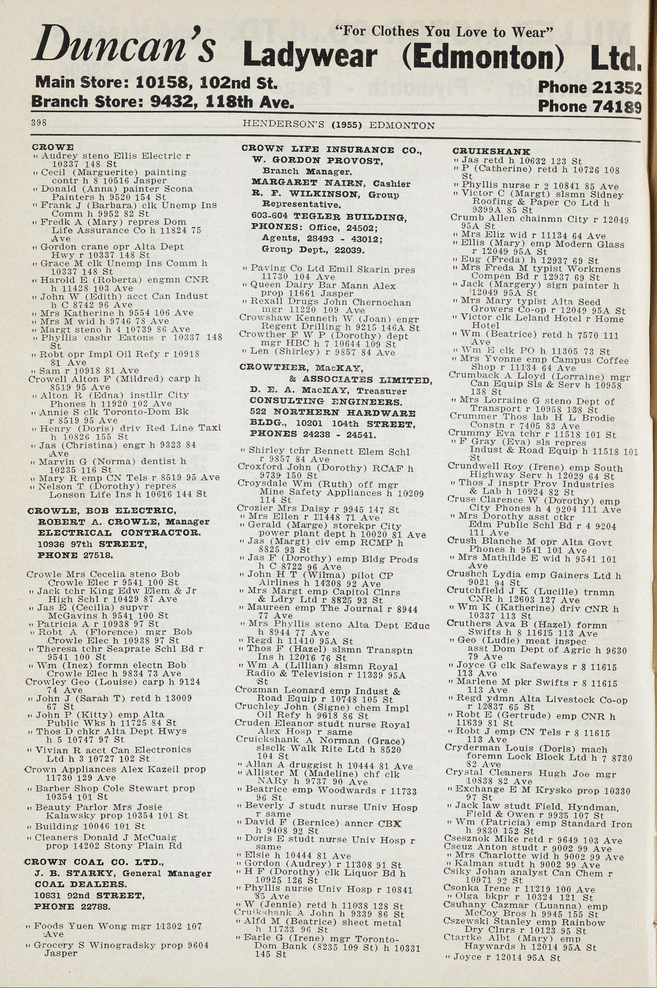 Duncan's
"For Clothes You Love to Wear"
Ladywear (Edmonton) Ltd.
Main Store: 10158, 102nd St.
Phone 21352
Branch Store: 9432, 118th Ave.
Phone 74189
398
HENDERSON'S (1955) EDMONTON
CROWE
" Audrey steno Ellis Electric r
10337 148 St
" Cecil (Marguerite) painting
contr h 8 10516 Jasper
" Donald (Anna) painter Scona
Painters h 9520 154 St
" Frank J (Barbara) clk Unemp Ins
Comm h 9952 82 St
" Fredk A (Mary) repres Dom
Life Assurance Co h 11824 75
Ave
" Gordon crane opr Alta Dept
Hwy r 10337 148 St
" Grace M clk Unemp Ins Comm h
10337 148 St
" Harold E (Roberta) engmn CNR
h 11428 103 Ave
" John W (Edith) acct Can Indust
h C 8742 96 Ave
" Mrs Katherine h 9554 106 Ave
" Mrs M wid h 9746 78 Ave
" Margt steno h 4 10739 86 Ave
" Phyllis cashr Eatons r 10337 148
St
" Robt opr Impl Oil Refy r 10918
81 Ave
" Sam r 10918 81 Ave
Crowell Alton F (Mildred) carp h
8519 95 Ave
" Alton R (Edna) instllr City
Phones h 11920 102 Ave
" Annie S clk Toronto-Dom Bk
r 8519 95 Ave
" Henry (Doris) driv Red Line Taxi
h 10826 155 St
" Jas (Christina) engr h 9323 84
Ave
" Marvin G (Norma) dentist h
10235 116 St
" Mary R emp CN Tels r 8519 95 Ave
" Nelson T (Dorothy) repres
Lonson Life Ins h 10616 144 St
CROWLE, BOB ELECTRIC,
ROBERT A. CROWLE, Manager
ELECTRICAL CONTRACTOR.
10936 97th STREET,
PHONE 27518.
Crowle Mrs Cecelia steno Bob
Crowle Elec r 9541 100 St
" Jack tchr King Edw Elem & Jr
High Schl r 10429 87 Ave
" Jas E (Cecilia) supvr
McGavins h 9541 100 St
" Patricia A r 10938 97 St
" Robt A (Florence) mgr Bob
Crowle Elec h 10938 97 St
" Theresa tchr Seaprate Schl Bd r
9541 100 St
" Wm (Inez) formn electn Bob
Crowle Elec h 9834 73 Ave
Crowley Geo (Louise) carp h 9124
74 Ave
" John J (Sarah T) retd h 13009
67 St
" John P (Kitty) emp Alta
Public Wks h 11725 84 St
" Thos D chkr Alta Dept Hwys
h 5 10747 97 St
" Vivian R acct Can Electronics
Ltd h 3 10727 102 St
Crown Appliances Alex Kazeil prop
11730 129 Ave
" Barber Shop Cole Stewart prop
10354 101 St
" Beauty Parlor Mrs Josie
Kalawsky prop 10354 101 St
" Building 10046 101 St
" Cleaners Donald J McCuaig
prop 14202 Stony Plain Rd
CROWN COAL CO. LTD.,
J. B. STARKY, General Manager
COAL DEALERS.
10631 92nd STREET,
PHONE 22788.
" Foods Yuen Wong mgr 11302 107
Ave
" Grocery S Winogradsky prop 9604
Jasper
CROWN LIFE INSURANCE CO.,
W. GORDON PROVOST,
Branch Manager.
MARGARET NAIRN, Cashier
R. F. WILKINSON, Group
Representative.
603-604 TEGLER BUILDING,
PHONES: Office, 24502;
Agents, 28493 - 43012;
Group Dept., 22039.
" Paving Co Ltd Emil Skarin pres
11730 104 Ave
" Queen Dairy Bar Mann Alex
prop 11661 Jasper
" Rexall Drugs John Chernochan
mgr 11220 109 Ave
Crowshaw Kenneth W (Joan) engr
Regent Drilling h 9215 146A St
Crowther F W P (Dorothy) dept
mgr HBC h 7 10644 109 St
" Len (Shirley) r 9857 84 Ave
CROWTHER, MacKAY,
& ASSOCIATES LIMITED,
D. E. A. MacKAY, Treasurer
CONSULTING ENGINEERS.
522 NORTHERN HARDWARE
BLDG., 10201 104th STREET,
PHONES 24238 - 24541.
" Shirley tchr Bennett Elem Schl
r 9857 84 Ave
Croxford John (Dorothy) RCAF h
9739 150 St
Croysdale Wm (Ruth) off mgr
Mine Safety Appliances h 10209
114 St
Crozier Mrs Daisy r 9945 147 St
" Mrs Ellen r 11448 71 Ave
" Gerald (Marge) storekpr City
power plant dept h 10020 81 Ave
" Jas (Margt) civ emp RCMP h
8825 93 St
" Jas F (Dorothy) emp Bldg Prods
h C 8722 96 Ave
" John H T (Wilma) pilot CP
Airlines h 14308 92 Ave
" Mrs Margt emp Capitol Clnrs
& Ldry Ltd r 8825 93 St
" Maureen emp The Journal r 8944
77 Ave
" Mrs Phyllis steno Alta Dept Educ
h 8944 77 Ave
" Regd h 11410 95A St
" Thos F (Hazel) slsmn Transptn
Ins h 12016 76 St
" Wm A (Lillian) slsmn Royal
Radio & Television r 11339 95A
St
Crozman Leonard emp Indust &
Road Equip r 10748 105 St
Cruchley John (Signe) chem Impl
Oil Refy h 9618 86 St
Cruden Eleanor studt nurse Royal
Alex Hosp r same
Cruickshank A Norman (Grace)
slsclk Walk Rite Ltd h 8520
104 St
" Allan A druggist h 10444 81 Ave
" Allister M (Madeline) chf clk
NARy h 9737 90 Ave
" Beatrice emp Woodwards r 11733
96 St
" Beverly J studt nurse Univ Hosp
r same
" David F (Bernice) anncr CBX
h 9408 92 St
" Doris E studt nurse Univ Hosp r
same
" Elsie h 10444 81 Ave
" Gordon (Audrey) r 11308 91 St
" H F (Dorothy) clk Liquor Bd h
10925 126 St
" Phyllis nurse Univ Hosp r 10841
85 Ave
" W (Jennie) retd h 11038 128 St
Cruikshank A John h 9339 86 St
" Alfd M (Beatrice) sheet metal
h 11733 96 St
" Earle G (Irene) mgr Toronto-
Dom Bank (8235 109 St) h 10331
145 St
CRUIKSHANK
" Jas retd h 10632 123 St
" P (Catherine) retd h 10726 108
St
" Phyllis nurse r 2 10841 85 Ave
" Victor C (Margt) slsmn Sidney
Roofing & Paper Co Ltd h
9399A 85 St
Crumb Allen chainmn City r 12049
95A St
" Mrs Eliz wid r 11134 64 Ave
" Ellis (Mary) emp Modern Glass
r 12049 95A St
" Eug (Freda) h 12937 69 St
" Mrs Freda M typist Workmens
Compen Bd r 12937 69 St
" Jack (Margery) sign painter h
12049 95A St
" Mrs Mary typist Alta Seed
Growers Co-op r 12049 95A St
" Victor clk Leland Hotel r Home
Hotel
" Wm (Beatrice) retd h 7570 111
Ave
" Wm E clk PO h 11305 73 St
" Mrs Yvonne emp Campus Coffee
Shop r 11134 64 Ave
Crumback A Lloyd (Lorraine) mgr
Can Equip Sls & Serv h 10958
138 St
" Mrs Lorraine G steno Dept of
Transport r 10958 138 St
Crummer Thos lab H L Brodie
Constn r 7405 83 Ave
Crummy Eva tchr r 11518 101 St
" F Gray (Eva) sls repres
Indust & Road Equip h 11518 101
St
Crundwell Roy (Irene) emp South
Highway Serv h 12029 64 St
" Thos J insptr Prov Industries
& Lab h 10924 82 St
Cruse Clarence W (Dorothy) emp
City Phones h 4 9204 111 Ave
" Mrs Dorothy asst clktr
Edm Public Schl Bd r 4 9204
111 Ave
Crush Blanche M opr Alta Govt
Phones h 9541 101 Ave
" Mrs Mathilde E wid h 9541 101
Ave
Crushch Lydia emp Gainers Ltd h
9021 94 St
Crutchfield J K (Lucille) trnmn
CNR h 12603 127 Ave
" Wm K (Katherine) driv CNR h
10337 113 St
Cruthers Ava B (Hazel) formn
Swifts h 8 11615 113 Ave
" Geo (Ludie) meat inspec
asst Dom Dept of Agric h 9630
79 Ave
" Joyce G clk Safeways r 8 11615
113 Ave
" Marlene M pkr Swifts r 8 11615
113 Ave
" Regd ydmn Alta Livestock Co-op
r 12837 65 St
" Robt E (Gertrude) emp CNR h
11639 81 St
" Robt J emp CN Tels r 8 11615
113 Ave
Cryderman Louis (Doris) mach
foremn Lock Block Ltd h 7 8730
82 Ave
Crystal Cleaners Hugh Joe mgr
10838 82 Ave
" Exchange E M Krysko prop 10330
97 St
" Jack law studt Field, Hyndman,
Field & Owen r 9935 107 St
" Wm (Patricia) emp Standard Iron
h 9830 152 St
Csesznok Mike retd r 9649 103 Ave
Cseuz Anton studt r 9002 99 Ave
" Mrs Charlotte wid h 9002 99 Ave
" Kalman studt h 9002 99 Ave
Csiky Johan analyst Can Chem r
10971 92 St
Csonka Irene r 11219 100 Ave
" Olga bkpr r 10324 121 St
Csuhany Cazmar (Luanna) emp
McCoy Bros h 9945 155 St
Cszewski Stanley emp Rainbow
Dry Clnrs r 10123 95 St
Ctartke Albt (Mary) emp
Haywards h 12014 95A St
" Joyce r 12014 95A St